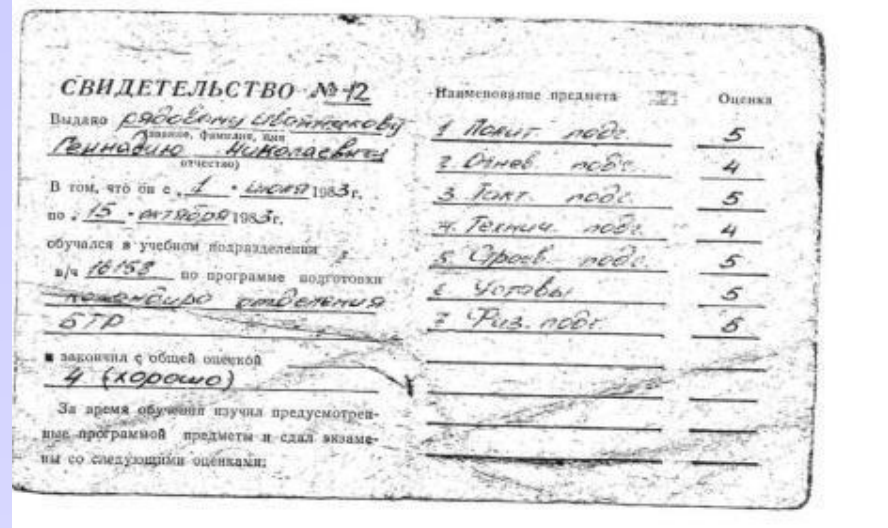 СВИДЕТЕЛЬСТВО № 12
Выдано рядовому
(звание, фамилия, имя
Геннадию Николаевичу
отчество)
В том, что он с „1" июля 1983г.
по „15" октября 1983г.
обучался в учебном подразделении
в/ч 16158 по программе подготовки
командира отделения
БТР
и закончил с общей оценкой
4 (хорошо)
За время обучения изучил предусмотрен-
ные программой предметы и сдал экзаме-
ны со следующими оценками:
Наименование предмета Оценка
1 Полит. подг. 5
2. Огнев. подг. 4
3. Такт. подг. 5
4. Технич. подг. 4
5. Строев. подг. 5
6 Уставы 5
7 Физ. подг. 5